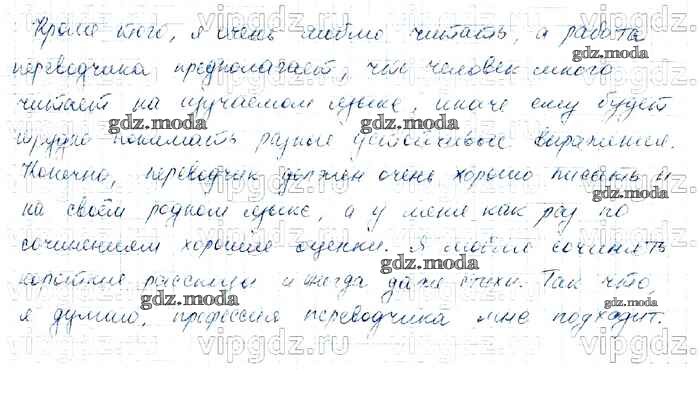 Кроме того, я очень люблю читать, а работа
переводчика предполагает, что человек много
читает на изучаемом языке, иначе ему будет
трудно понимать разные устойчивые выражения.
Конечно, переводчик должен очень хорошо писать и
на своём родном языке, а у меня как раз по
сочинениям хорошие оценки. Я люблю сочинять
короткие рассказы и иногда даже стихи. Так что,
я думаю, профессия переводчика мне подходит.